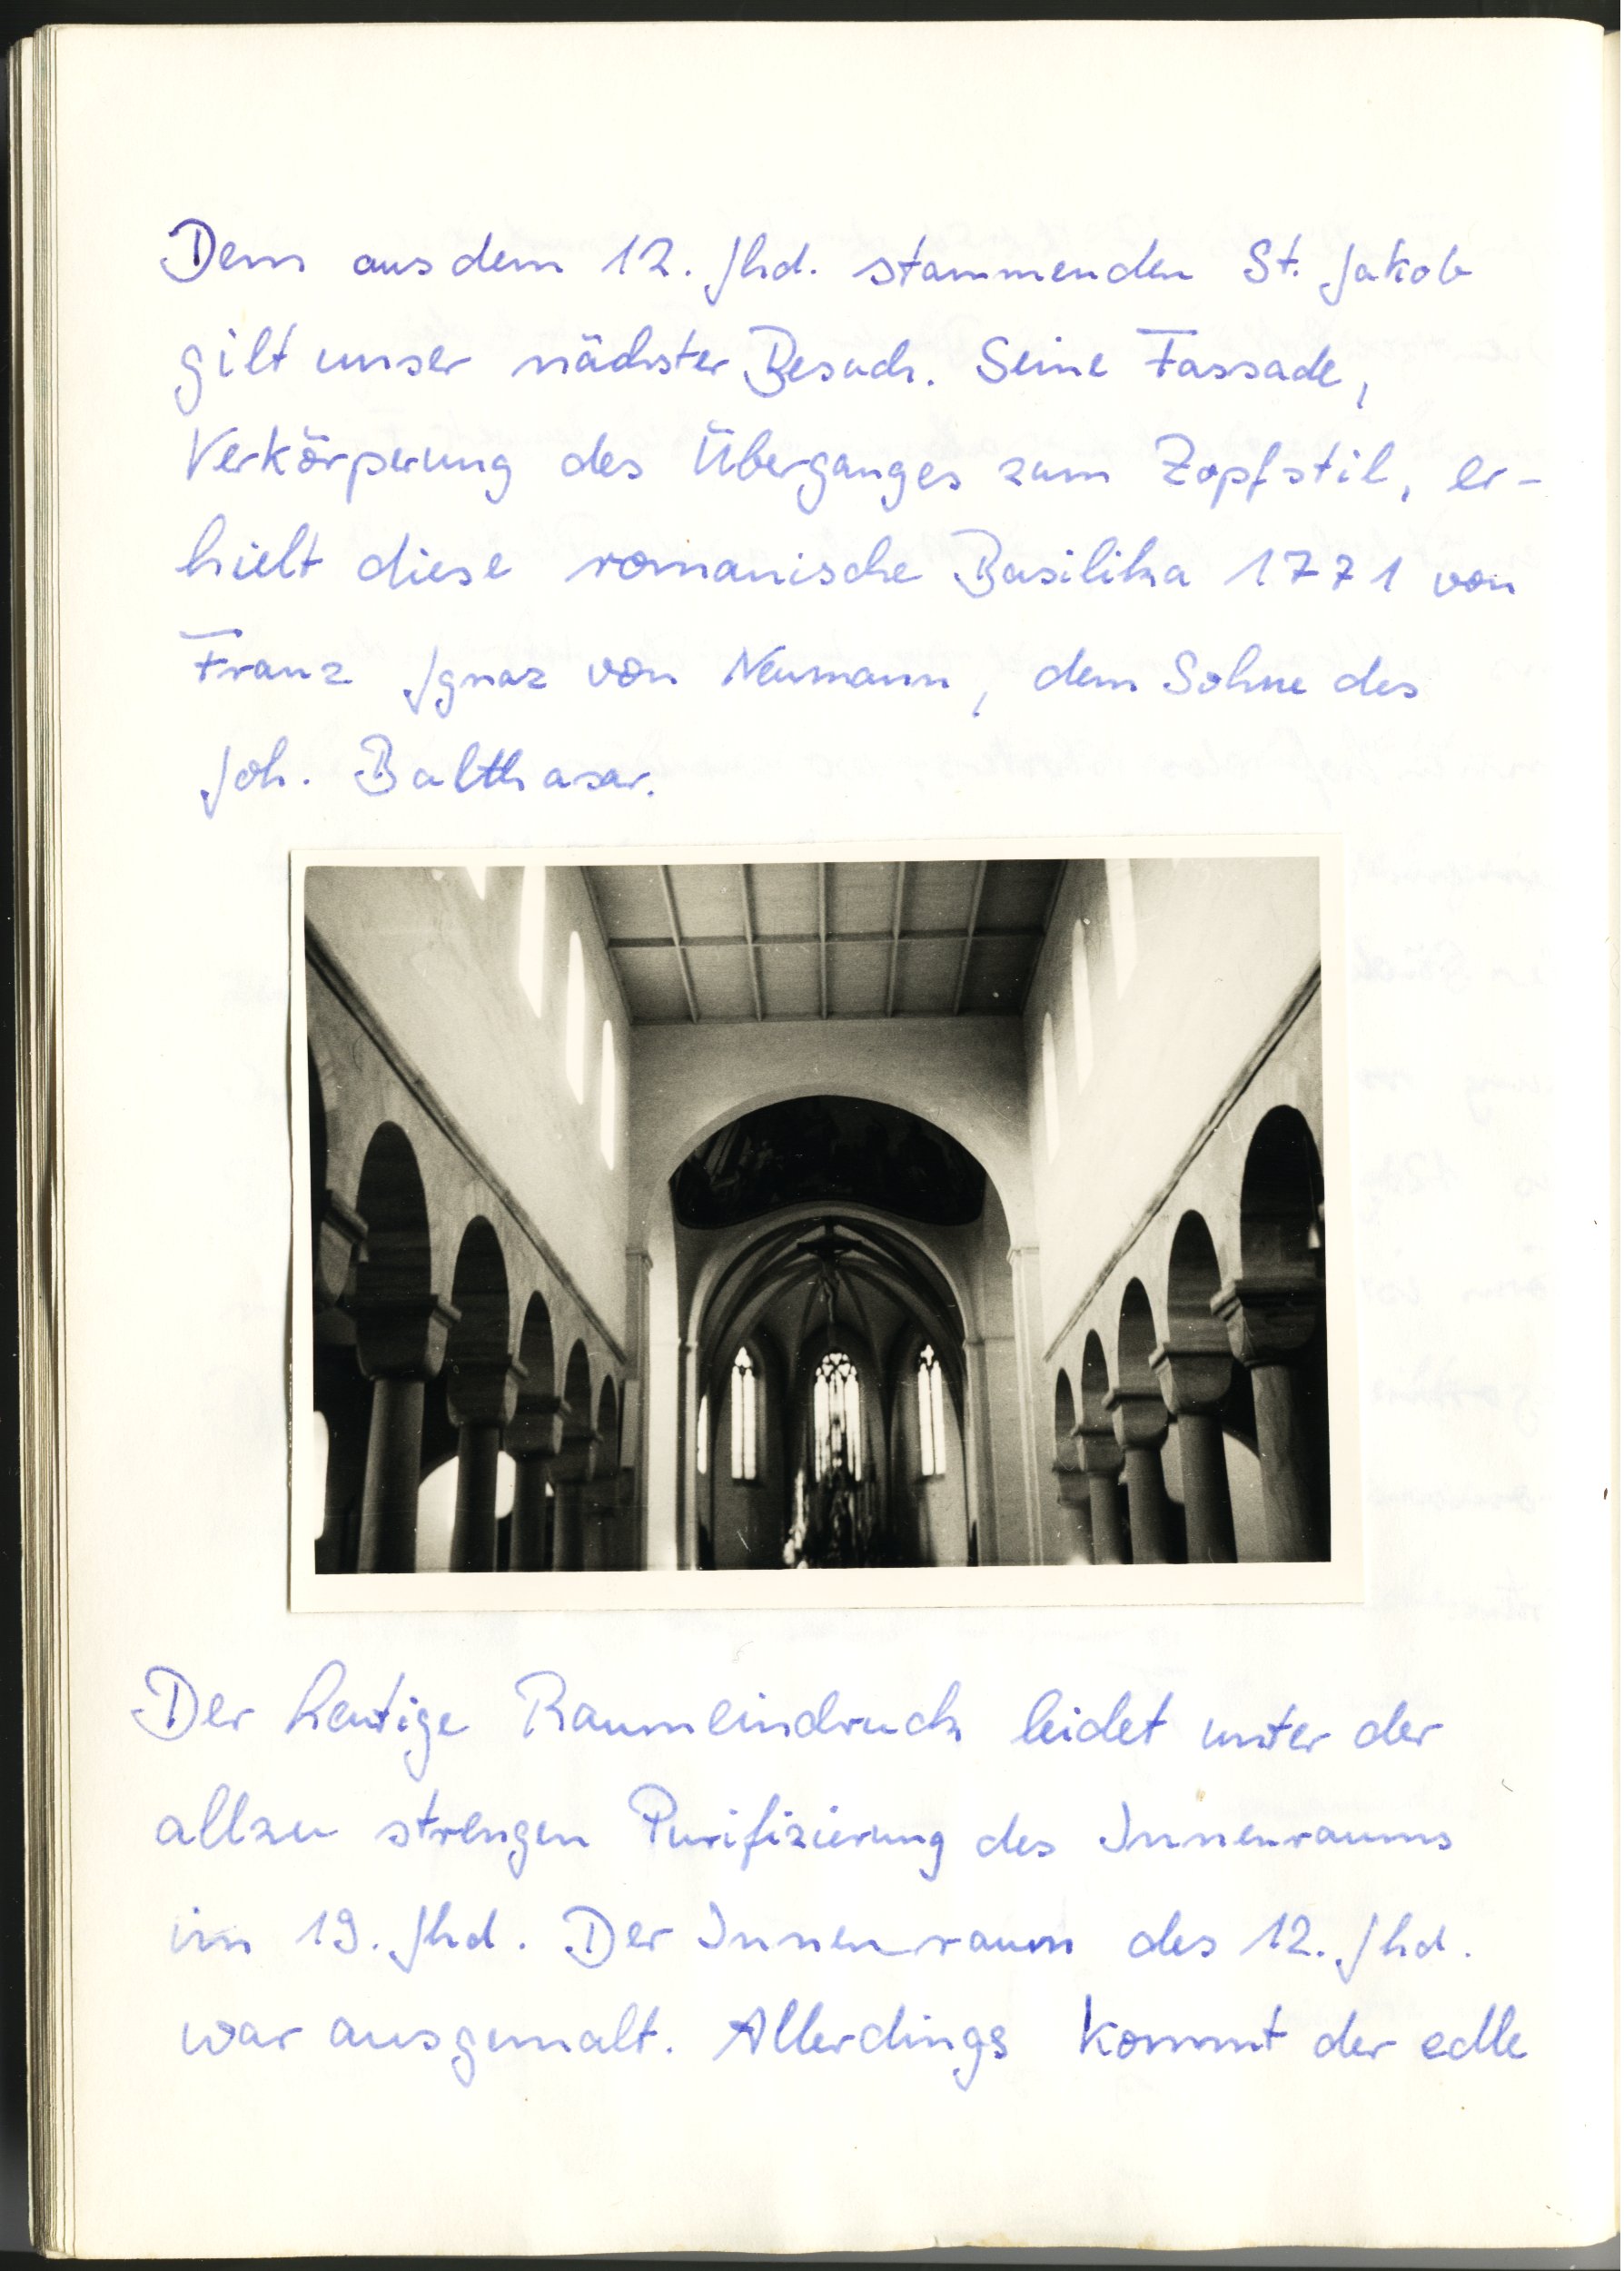 Dem aus dem 12. Jhd. stammenden St. Jakob
gilt unser nächster Besuch. Seine Fassade,
Verkörperung des Überganges zum Zopfstil, er-
hielt diese romanische Basilika 1771 von
Franz Ignaz von Neumann, dem Sohne des
Joh. Balthasar.
Der heutige Raumeindruck leidet unter der
allzu strengen Purifizierung des Innenraums
im 19. Jhd. Der Innenraum des 12. Jhd.
war ausgemalt. Allerdings kommt der edle